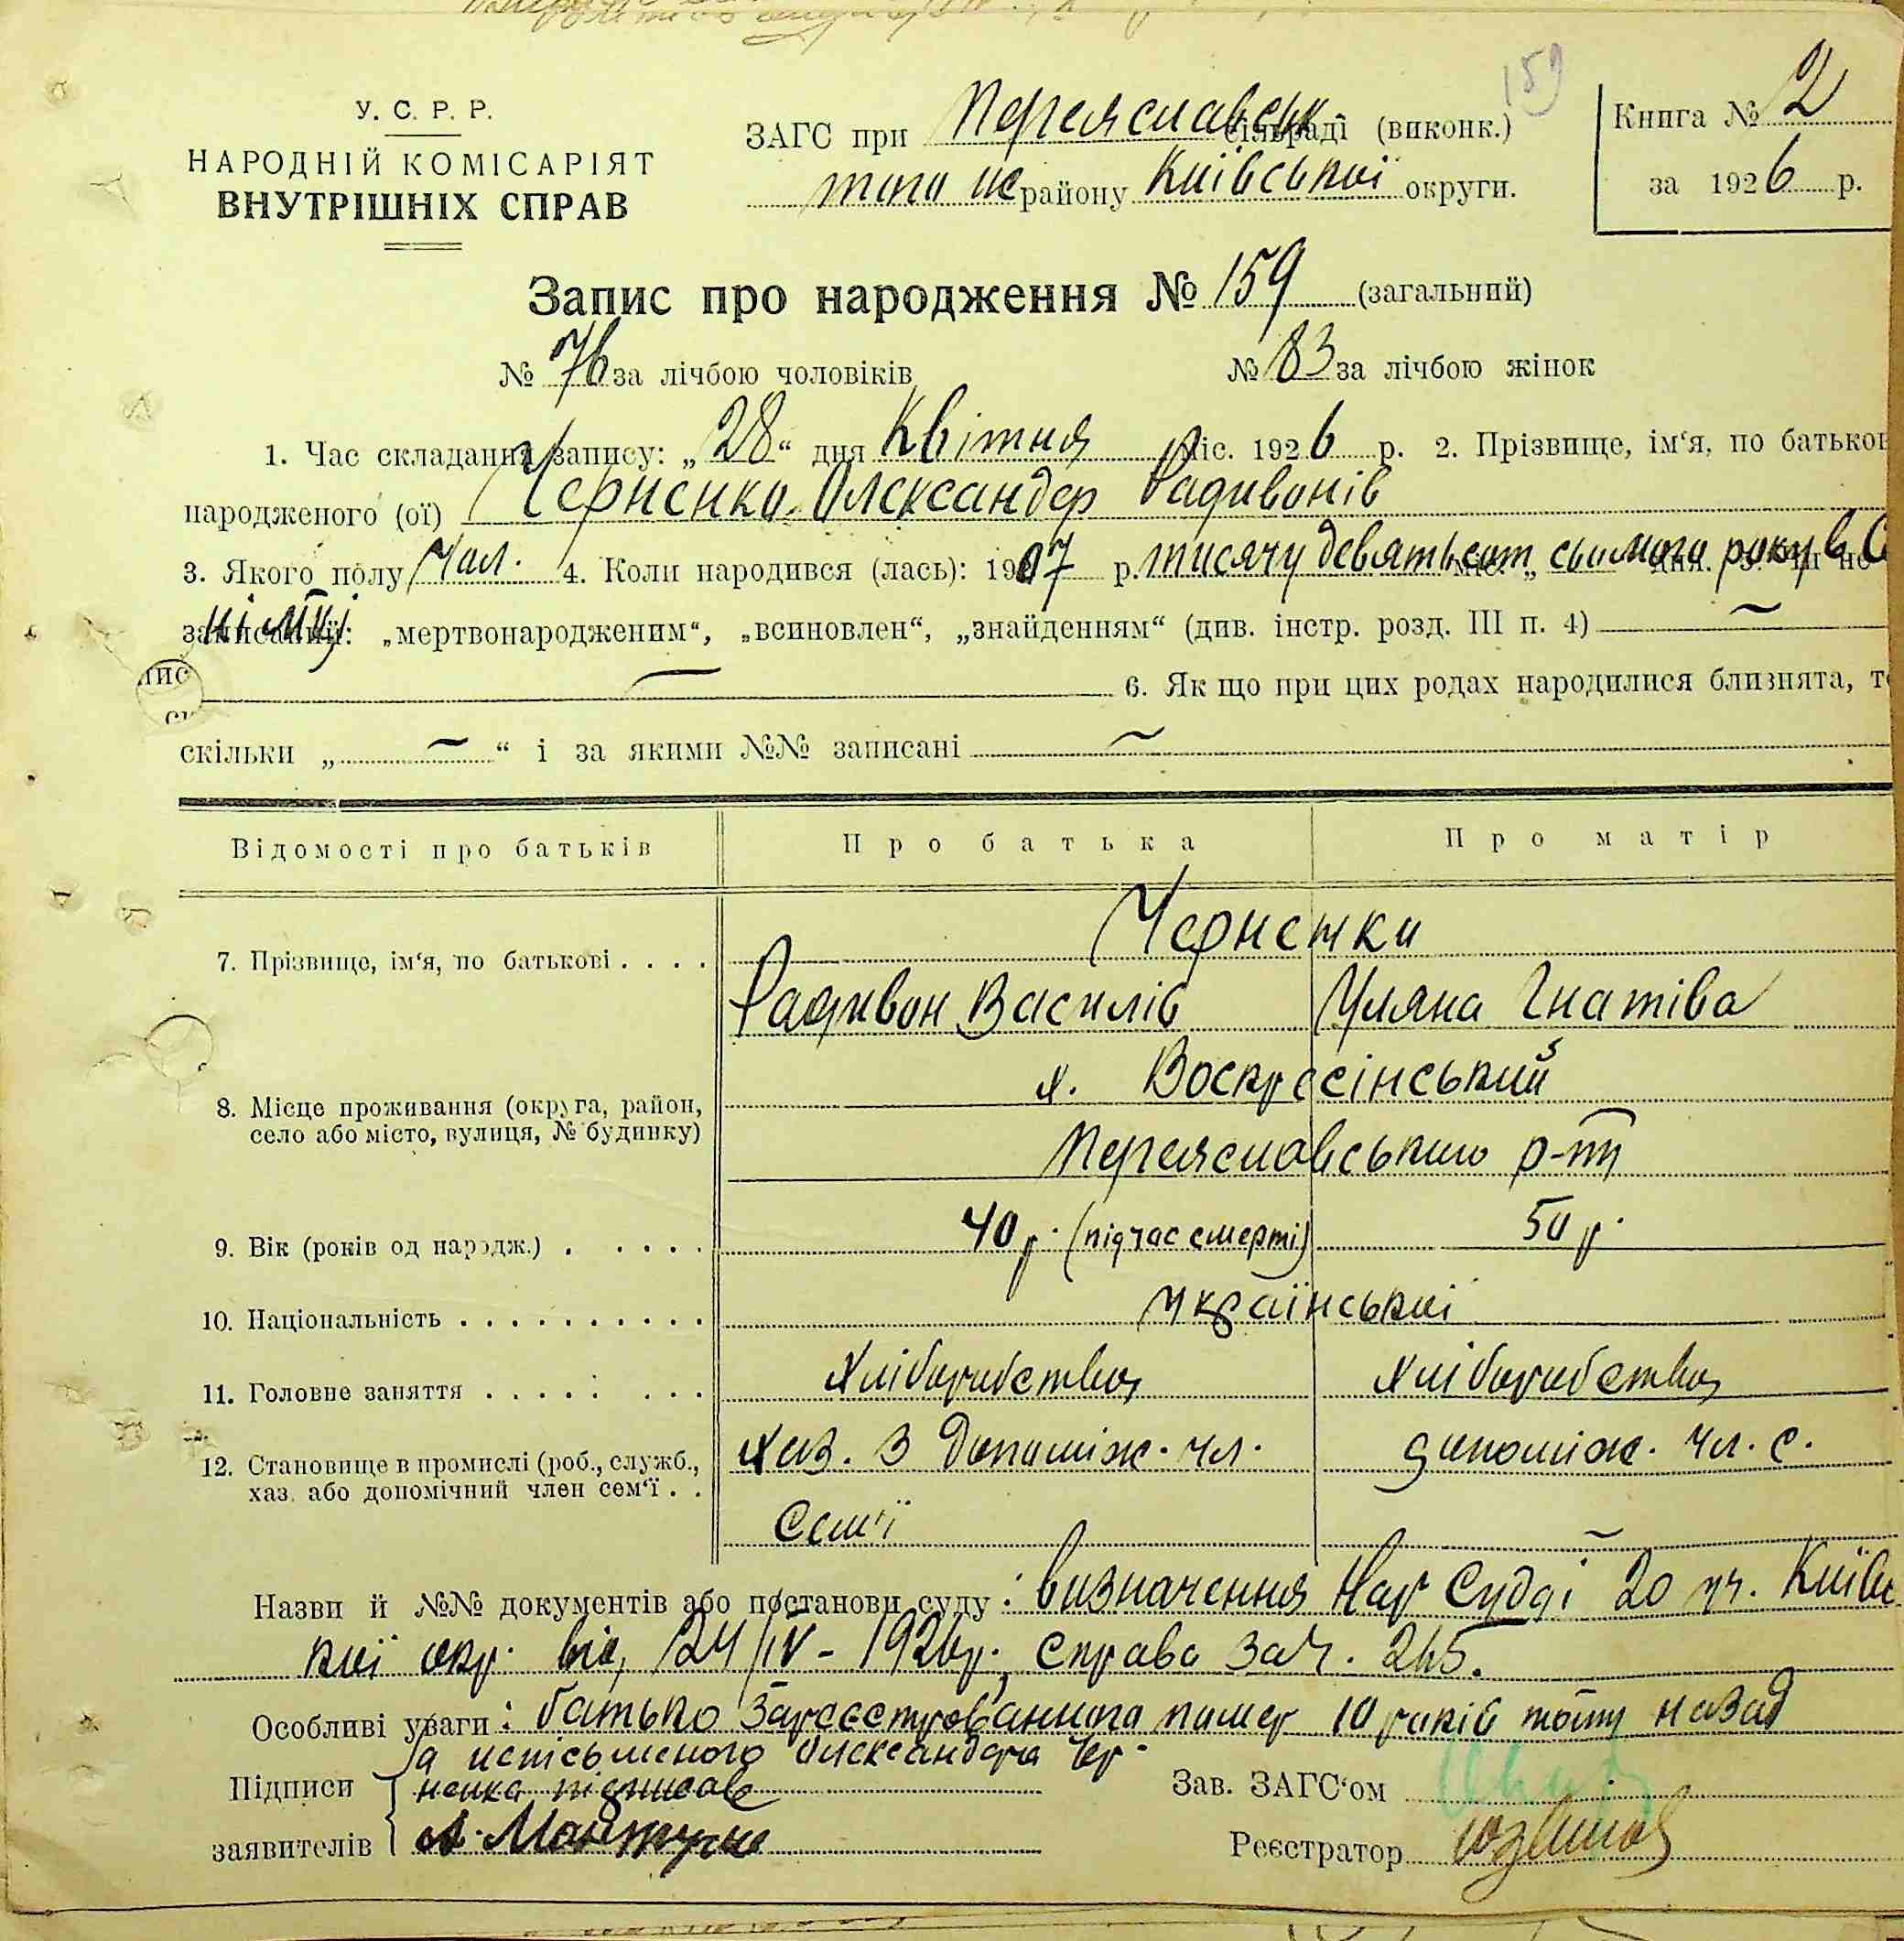 159
У. С. Р. Р.
НАРОДНІЙ КОМІСАРІЯТ
ВНУТРІШНІХ СПРАВ
ЗАГС при Переяславськ сільраді (виконк.)
того ж району Київської округи.
Книга № 2
за 1926 р.
Запис про народження № 159 (загальний)
№ 76 за лічбою чоловіків № 83 за лічбою жінок
1. Час складання запису: „28“ дня Квітня міс. 1926 р. 2. Прізвище, ім'я, по батькові
народженого (ої) Черненко Олександер Радивонів
3. Якого полу Чол. 4. Коли народився (лась): 1907 р. тисячу девятьсот сьомого року в С
ні м-ці
записаний: „мертвонародженим“, „всиновлен“, „знайденням“ (див. інстр. розд. III п. 4) —
— 6. Як що при цих родах народилися близнята, то
скільки „ — “ і за якими №№ записані —
Відомості про батьків Про батька Про матір
7. Прізвище, ім‘я, по батькові . . . . Черненки
Радивон Василів Уляна Гнатіва
8. Місце проживання (округа, район,
село або місто, вулиця, № будинку)
х. Воскресінський
Переяславського р-ну
9. Вік (років од народж.) . . . . . 40 р. (під час смерті) 50 р.
10. Національність . . . . . . . . . . української
11. Головне заняття . . . . . . . . Хліборобство Хліборобство
12. Становище в промислі (роб., служб.,
хаз. або допомічний член сем‘ї . .
Хаз. з допоміж. чл. допоміж. чл. с.
Сем'ї —
Назви й №№ документів або постанови суду: визначення Нар Судді 20 уч. Київс
кої окр. від 24/IV - 1926 р., справа за ч. 265.
Особливі уваги: батько Зареєстрованного помер 10 років тому назад
Підписи
заявителів
За неписьменого Олександра Чер-
ненка підписав
Зав. ЗАГС‘ом
Реєстратор